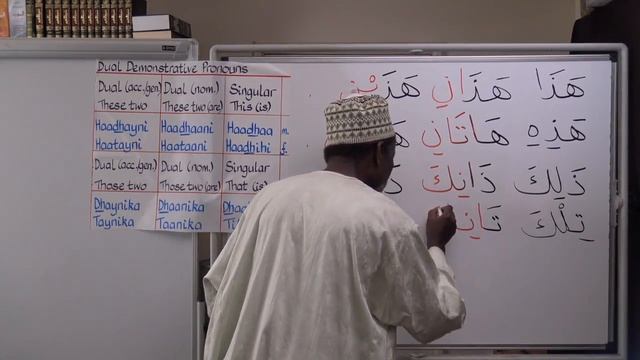 Dual Demonstrative Pronouns
Dual (acc./gen.) Dual (nom.) Singular
These two These two (are) This (is)
Haadhayni Haadhaani Haadhaa m.
Haatayni Haataani Haadhihi f.
Dual (acc./gen.) Dual (nom.) Singular
Those two Those two (are) That (is)
Dhaynika Dhaanika
Taynika Taanika
هَذَا هَذَانِ هَذَيْنِ
هَذِهِ هَاتَانِ
ذَلِكَ ذَانِكَ
تِلْكَ تَانِ